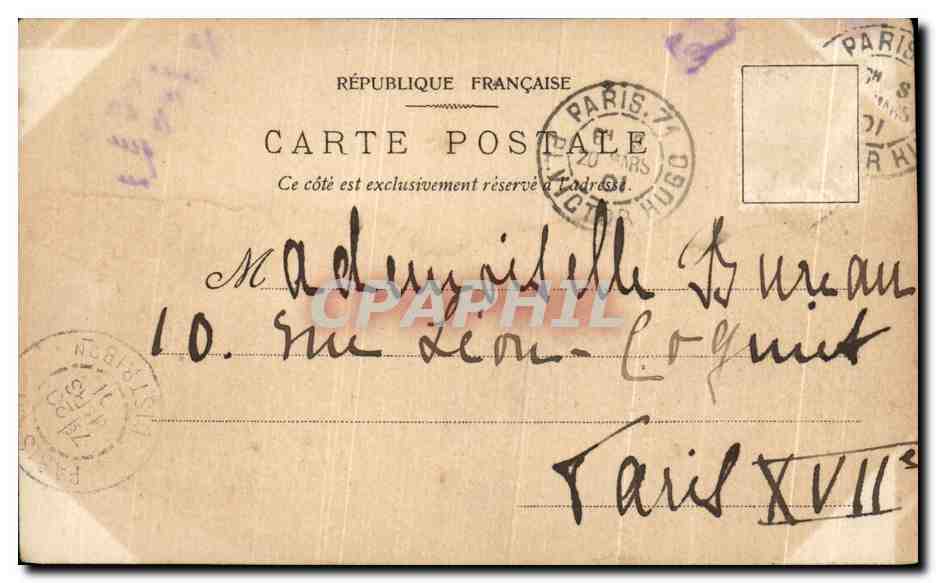 RÉPUBLIQUE FRANÇAISE
CARTE POSTALE
Ce côté est exclusivement réservé à l'adresse.
PARIS. 71
20 MARS
01
PL. VICTOR HUGO
PARIS
MARS
01
Mademoiselle Bureau
CPAPHIL
10. rue Léon-Cogniet
Paris XVIIe
PARIS
DISTRIBUTION